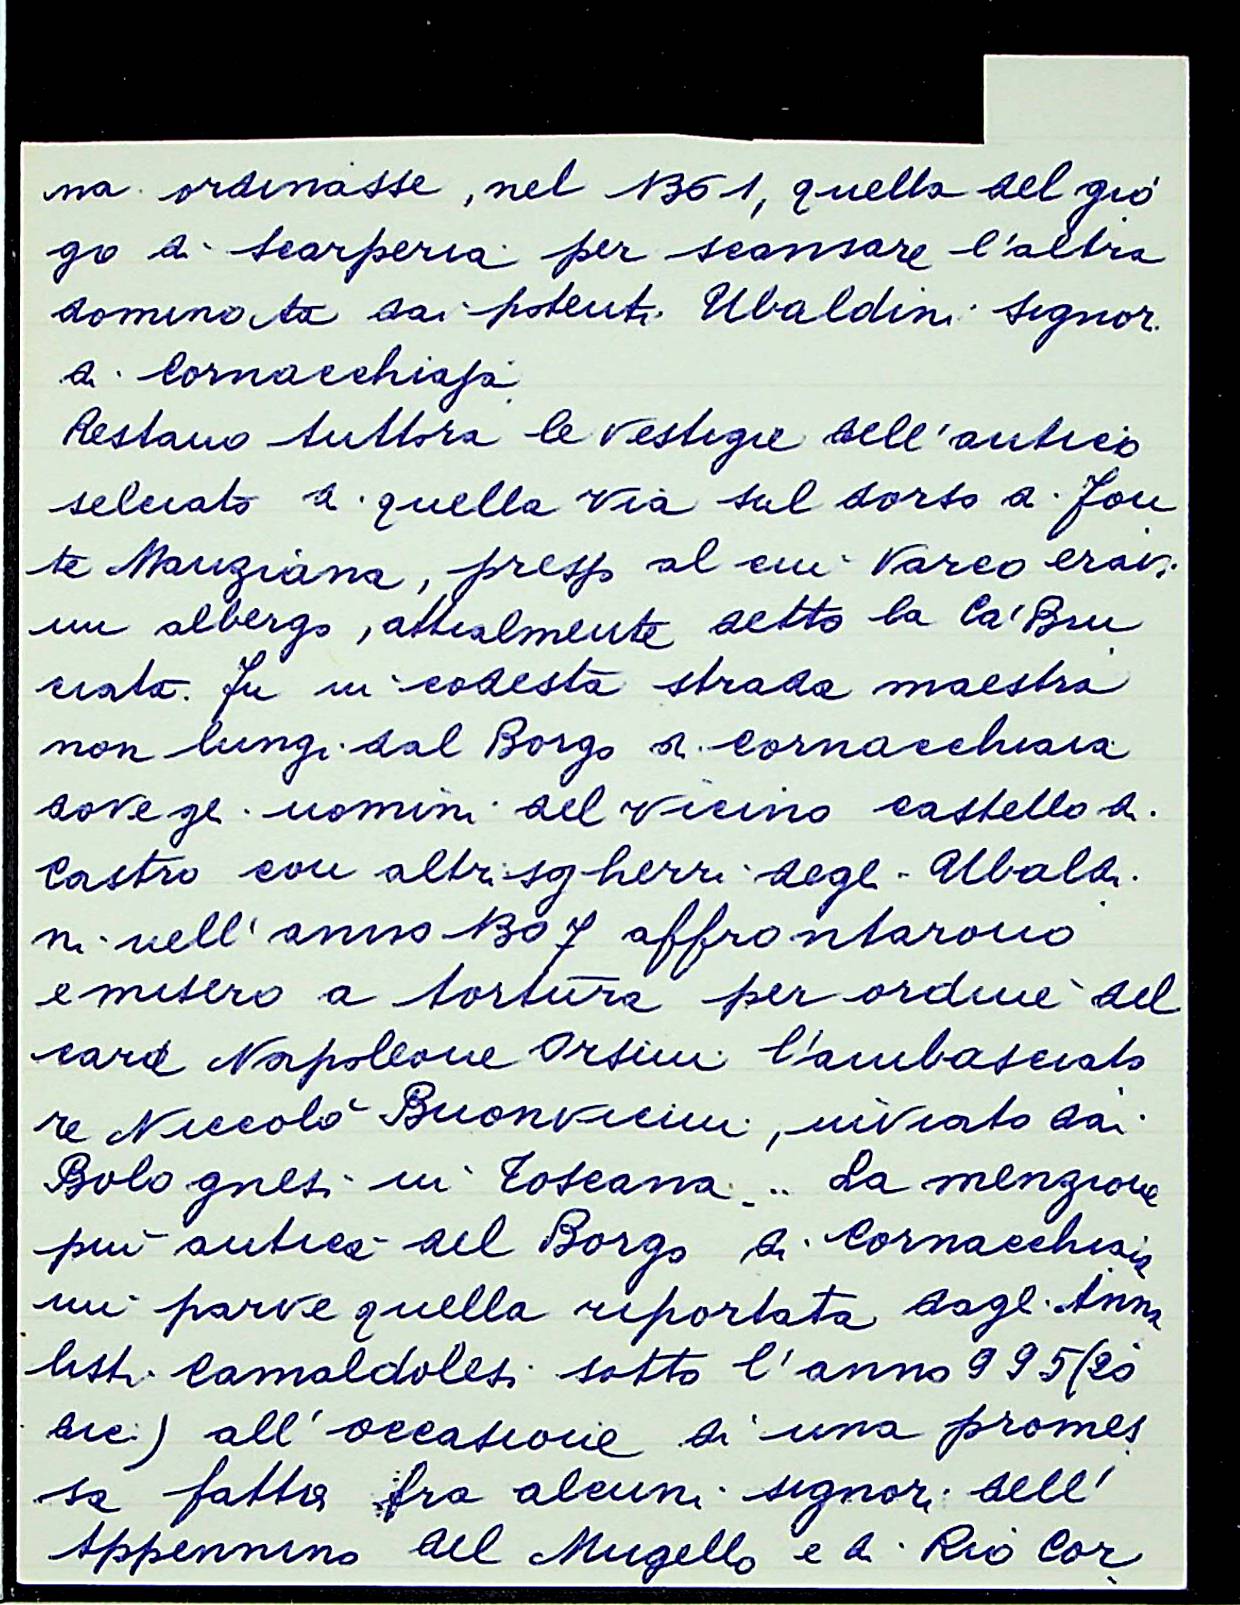 na ordinasse, nel 1361, quella del gio
go di Scarperia per scansare l'altra
dominata dai potenti Ubaldini signori
di Cornacchiaja
Restano tuttora le vestigie dell'antico
selciato di quella via sul dorso di Fon
te Manziana, presso al cui varco eravi
un albergo, attualmente detto la Ca' Bru
ciata. Fu in codesta strada maestra
non lungi dal Borgo di Cornacchiaia
dove gli uomini del vicino castello di
Castro con altri sgherri degli Ubaldi
ni nell'anno 1307 affrontarono
e misero a tortura per ordine del
card Napoleone Orsini l'ambasciato
re Niccolò Buonvicini, inviato dai
Bolognesi in Toscana... La menzione
più antica del Borgo di Cornacchiaia
mi parve quella riportata dagli Anna
listi Camaldolesi sotto l'anno 995 (20
dic.) all'occasione di una promes
sa fatta fra alcuni signori dell'
Appennino del Mugello e di Rio Cor